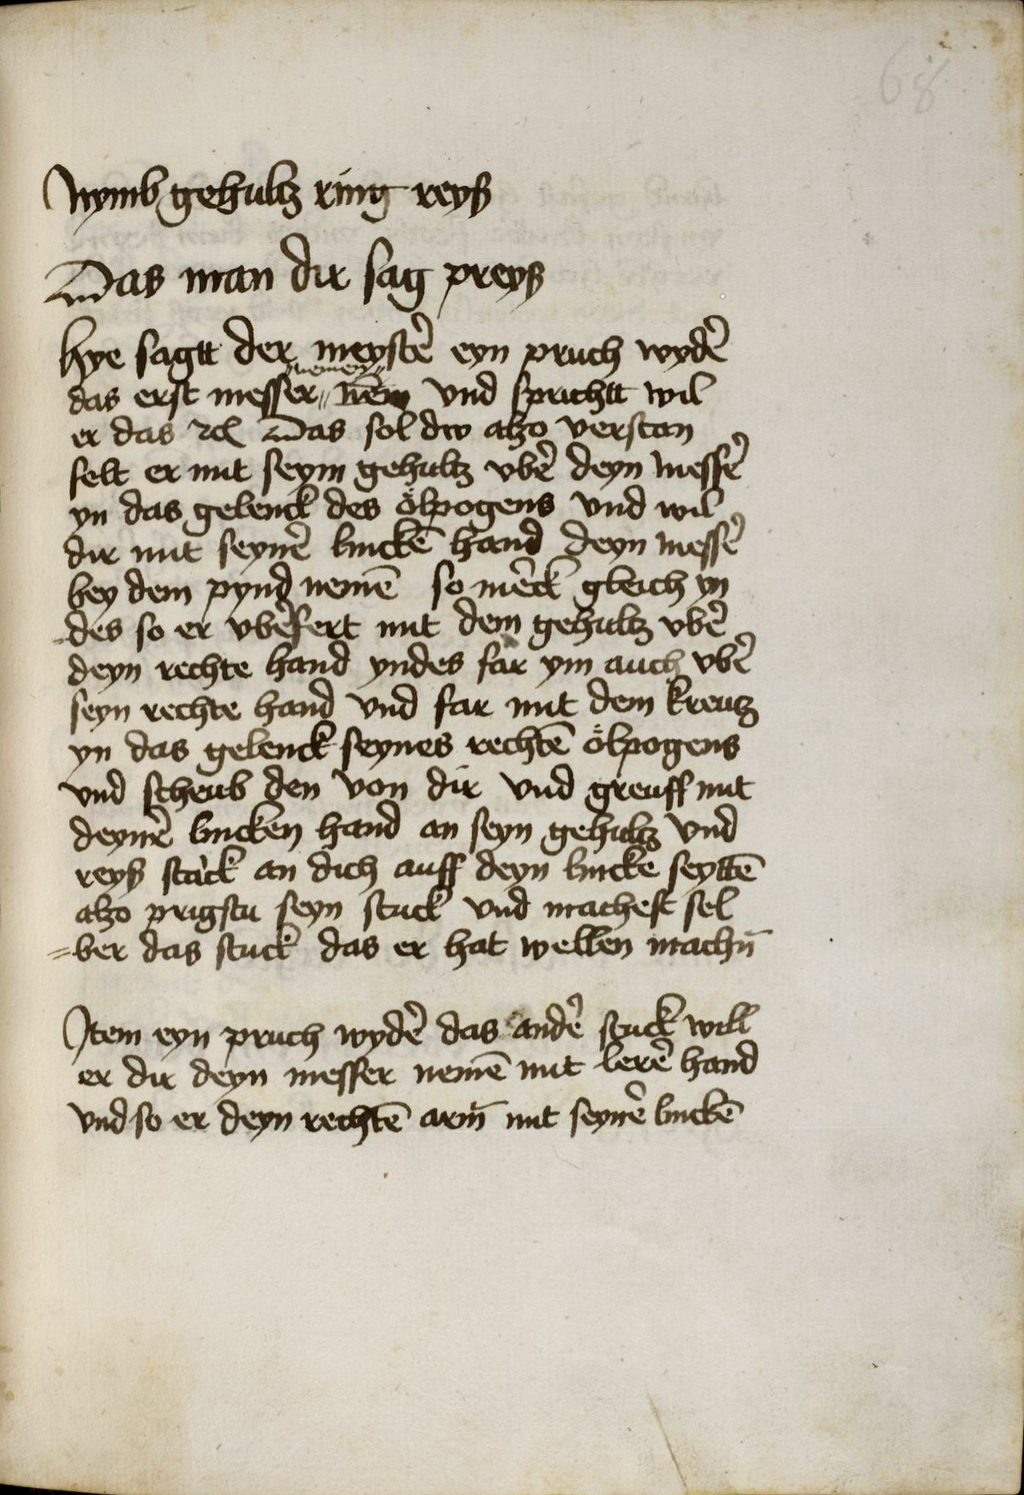 68
Nymb gehultz ring reyß
Das man dir sag preyß
Hye sagtt der meystẽr eyn pruch wydẽr
nemen
das erst messer nem vnd sprichtt wil
er das ⁊c̃ Das sol dw also verstan
felt er mit seym gehultz vbẽr deyn messẽr
yn das gelenck des ölpogens vnd wil
dir mit seynẽr linckẽ hand deyn messẽr
bey dem pynd nemẽ so mẽrck gleich yn
des so er vbẽrfert mit dem gehultz vbẽr
deyn rechte hand yndes far ym auch vbẽr
seyn rechte hand vnd far mit dem kreutz
yn das gelenck seynes rechtẽ ölpogens
vnd scheub den von dir vnd greuff mit
deynẽr lincken hand an seyn gehultz vnd
reyß starck an dich auff deyn lincke seyttẽ
also prigstu seyn stuck vnd machest sel
=ber das stuck das er hat wellen machñ
Item eyn pruch wydẽr das andẽr stuck will
er dir deyn messer nemẽ mit lerẽr hand
vnd so er deyn rechtẽ arm̃ mit seynẽr linckẽ